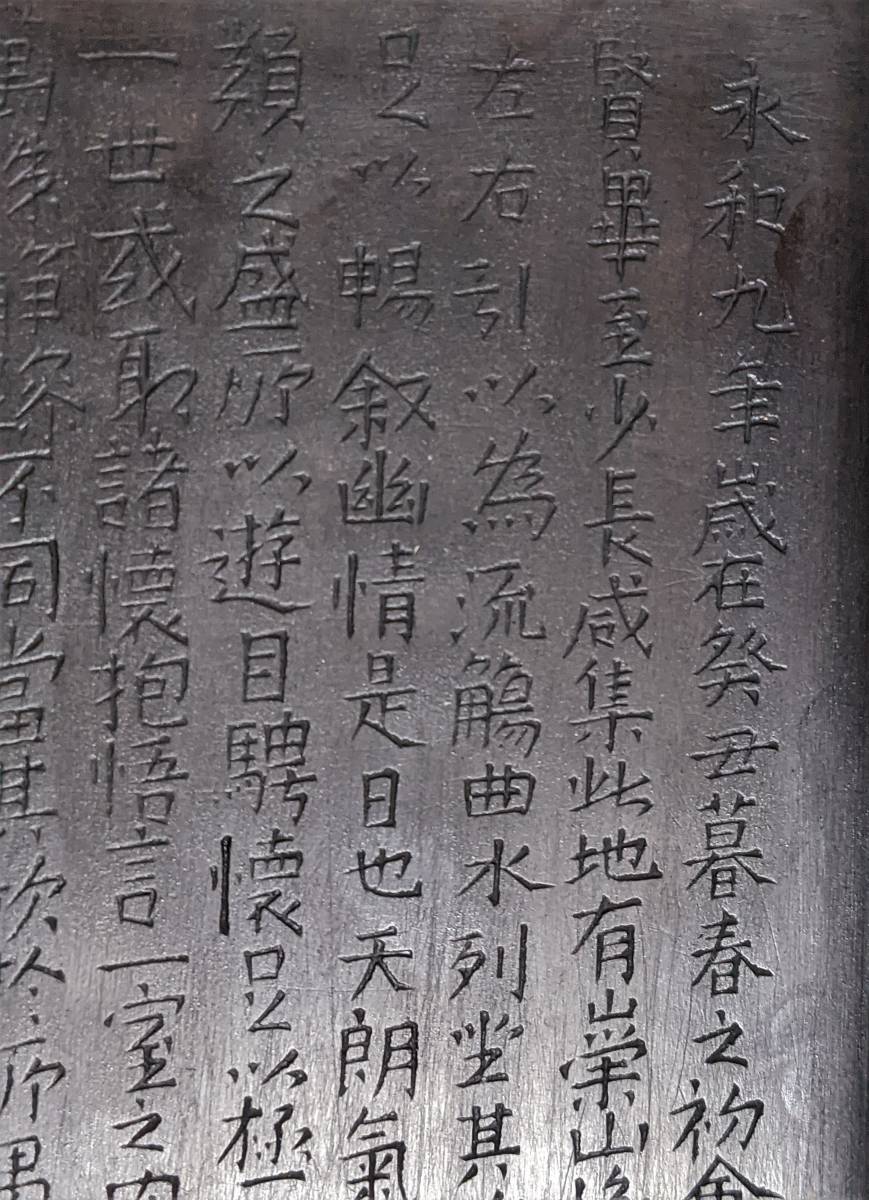 永和九年歲在癸丑暮春之初會
賢畢至少長咸集此地有崇山
左右引以為流觴曲水列坐其
足以暢敘幽情是日也天朗氣
類之盛所以遊目騁懷足以極
一世或取諸懷抱悟言一室之內
萬殊靜躁不同當其欣於所遇